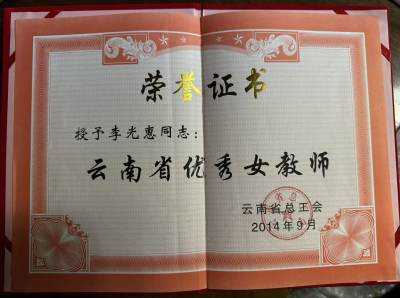 荣誉证书
授予李光惠同志:
云南省优秀女教师
云南省总工会
2014年9月